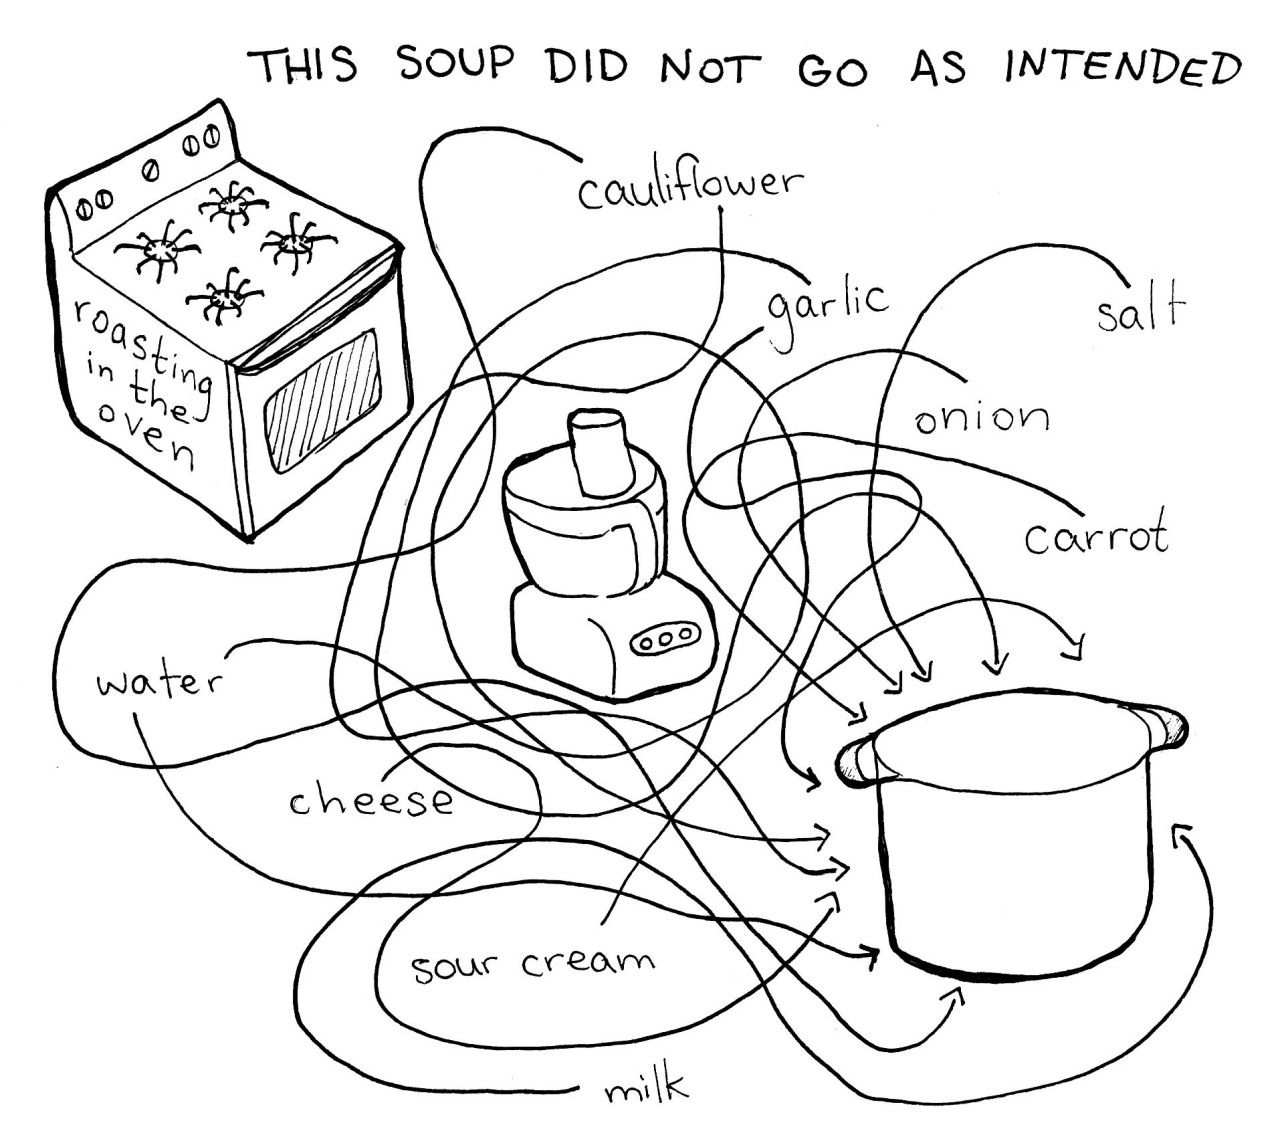 THIS SOUP DID NOT GO AS INTENDED
roasting
in the
oven
cauliflower
garlic
salt
onion
carrot
water
cheese
sour cream
milk